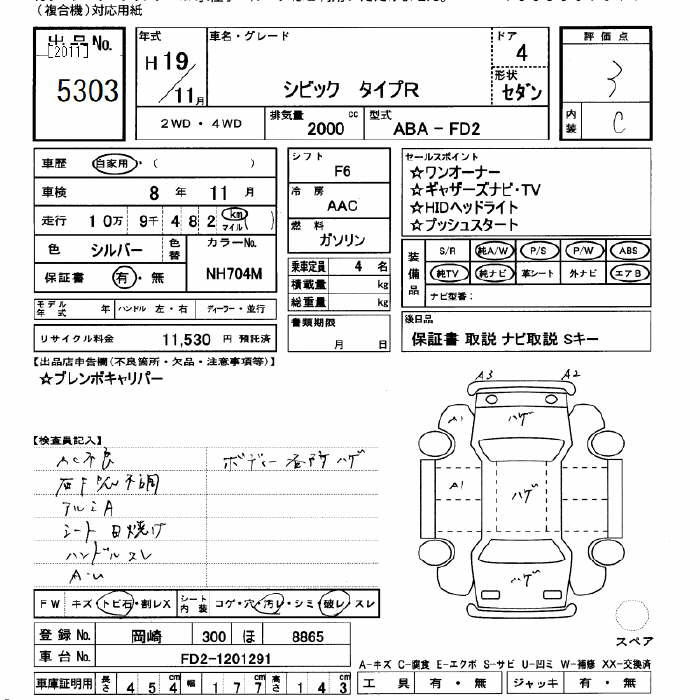 (複合機)対応用紙
出品No.
[2011]
5303
年式
H19/11月
車名・グレード
シビック タイプR
ドア
4
形状
セダン
評価点
3
内装
C
2WD・4WD
排気量
2000 cc
型式
ABA-FD2
車歴 自家用・( )
車検 8年 11月
走行 10万 9千 482 km マイル ( )
色 シルバー 色替
カラーNo.
NH704M
保証書 有・無
シフト
F6
冷房
AAC
燃料
ガソリン
乗車定員 4 名
積載量 kg
総重量 kg
セールスポイント
☆ワンオーナー
☆ギャザーズナビ・TV
☆HIDヘッドライト
☆プッシュスタート
装備品
S/R 純A/W P/S P/W ABS
純TV 純ナビ 革シート 外ナビ エアB
ナビ型番:
モデル年式 年 ハンドル 左・右 ディーラー・並行
リサイクル料金 11,530 円 預託済
書類期限
月 日
後日品
保証書 取説 ナビ取説 Sキー
【出品店申告欄(不良箇所・欠品・注意事項等)】
☆ブレンボキャリパー
【検査員記入】
AC不良
アルミA
シート日焼け
ハンドルスレ
A・U
ボディー各所ハゲ
A3 A2
A1 ハゲ
A1 ハゲ
ハゲ
スペア
FW キズ・トビ石・割レX シート内装 コゲ・穴・汚レ・シミ・破レ・スレ
登録No. 岡崎 300 ほ 8865
車台No. FD2-1201291
A-キズ C-腐食 E-エクボ S-サビ U-凹ミ W-補修 XX-交換済
車庫証明用 長さ 454cm 幅 177cm 高さ 143cm
工具 有・無 ジャッキ 有・無